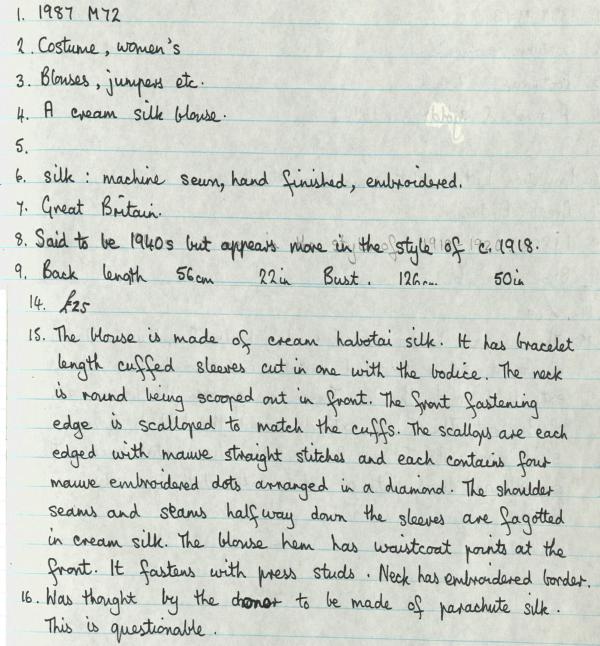 1. 1987 M72
2. Costume, women's
3. Blouses, jumpers etc.
4. A cream silk blouse.
5.
6. silk : machine sewn, hand finished, embroidered.
7. Great Britain.
8. Said to be 1940s but appears more in the style of c. 1918.
9. Back length 56cm 22in Bust. 126cm 50in
14. £25
15. The blouse is made of cream habotai silk. It has bracelet
length cuffed sleeves cut in one with the bodice. The neck
is round being scooped out in front. The front fastening
edge is scalloped to match the cuffs. The scallops are each
edged with mauve straight stitches and each contains four
mauve embroidered dots arranged in a diamond. The shoulder
seams and seams halfway down the sleeves are fagotted
in cream silk. The blouse hem has waistcoat points at the
front. It fastens with press studs. Neck has embroidered border.
16. Was thought by the donor to be made of parachute silk.
This is questionable.